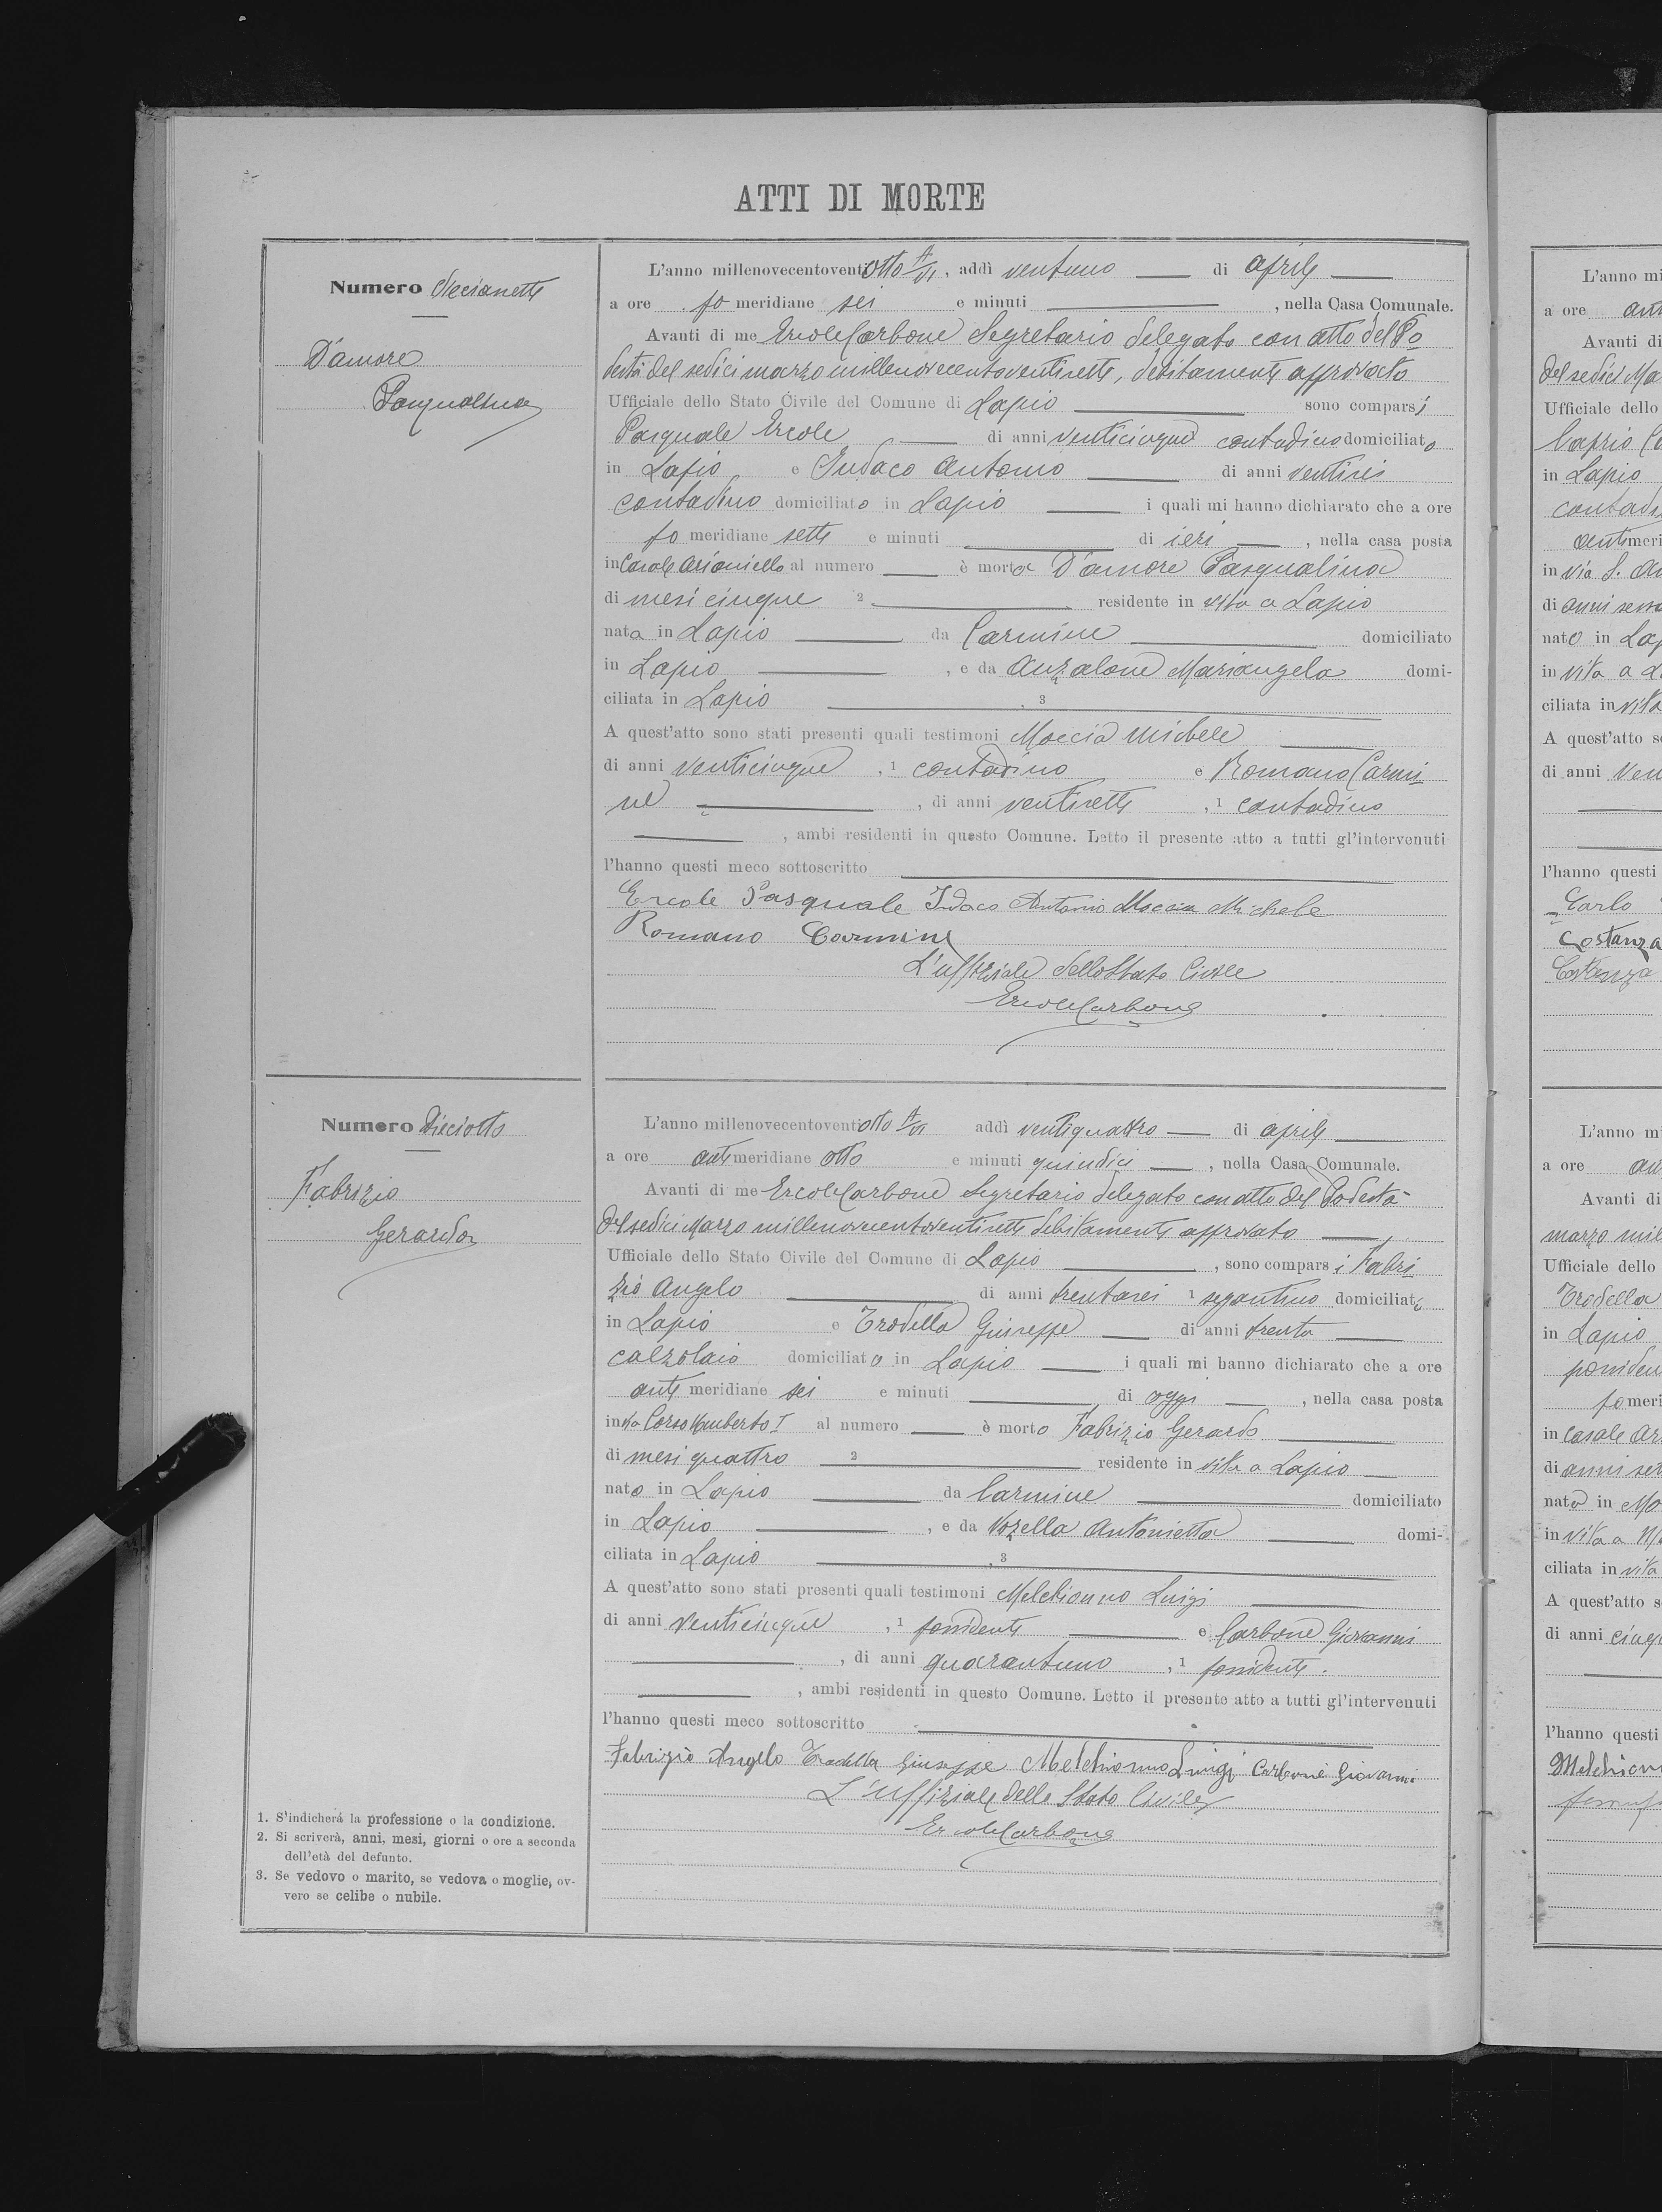 ATTI DI MORTE
Numero diecisette
D'amore
Pasqualina
L'anno millenovecentoventiotto A/VI, addì ventuno di aprile
a ore po meridiane sei e minuti , nella Casa Comunale.
Avanti di me Ercole Carbone Segretario delegato con atto del Po
destà del sedici marzo millenovecentoventisette, debitamente approvato
Ufficiale dello Stato Civile del Comune di Lapio sono comparsi
Pasquale Ercole di anni venticinque contadino domiciliato
in Lapio e Indaco Antonio di anni ventisei
contadino domiciliato in Lapio i quali mi hanno dichiarato che a ore
po meridiane sette e minuti di ieri , nella casa posta
in Casale Arianiello al numero è morta D'amore Pasqualina
di mesi cinque 2 residente in vita a Lapio
nata in Lapio da Carmine domiciliato
in Lapio , e da Anzalone Mariangela domi-
ciliata in Lapio 3
A quest'atto sono stati presenti quali testimoni Moccia Michele
di anni venticinque , 1 contadino e Romano Carmi
ne , di anni ventisette , 1 contadino
, ambi residenti in questo Comune. Letto il presente atto a tutti gl'intervenuti
l'hanno questi meco sottoscritto
Ercole Pasquale Indaco Antonio Moccia Michele
Romano Carmine
L'uffiziale dello Stato Civile
Ercole Carbone
Numero Dieciotto
Fabrizio
Gerardo
L'anno millenovecentoventiotto A/VI addì ventiquattro di aprile
a ore anti meridiane otto e minuti quindici , nella Casa Comunale.
Avanti di me Ercole Carbone Segretario delegato con atto del Podestà
del sedici Marzo millenovecentoventisette debitamente approvato ,
Ufficiale dello Stato Civile del Comune di Lapio , sono comparsi Fabri
zio Angelo di anni trentasei 1 segantino domiciliato
in Lapio e Trodella Giuseppe di anni trenta
calzolaio domiciliato in Lapio i quali mi hanno dichiarato che a ore
anti meridiane sei e minuti di oggi , nella casa posta
in via Corso Umberto I al numero è morto Fabrizio Gerardo
di mesi quattro 2 residente in vita a Lapio
nato in Lapio da Carmine domiciliato
in Lapio , e da Vozella Antonietta domi-
ciliata in Lapio , 3
A quest'atto sono stati presenti quali testimoni Melchionno Luigi
di anni venticinque , 1 possidente e Carbone Giovanni
, di anni quarantuno , 1 possidente.
, ambi residenti in questo Comune. Letto il presente atto a tutti gl'intervenuti
l'hanno questi meco sottoscritto
Fabrizio Angelo Trodella Giuseppe Melchionno Luigi Carbone Giovanni
L'uffiziale dello Stato Civile
Ercole Carbone
1. S'indicherá la professione o la condizione.
2. Si scriverà, anni, mesi, giorni o ore a seconda
dell'età del defunto.
3. Se vedovo o marito, se vedova o moglie, ov-
vero se celibe o nubile.
L'anno mi
a ore
Avanti di
del sedici Ma
Ufficiale dello
in Lapio
meri
in via S.
di anni
nato in Lap
in vita a L
ciliata in vita
A quest'atto s
di anni Ven
l'hanno questi
Carlo
Costanza
Costanza
L'anno mi
a ore
Avanti di
marzo mil
Ufficiale dello
Trodella
in Lapio
po meri
in Casale Ar
di anni set
nato in Mo
in vita a M
ciliata in vita
A quest'atto s
di anni cinq
l'hanno questi
Melchion